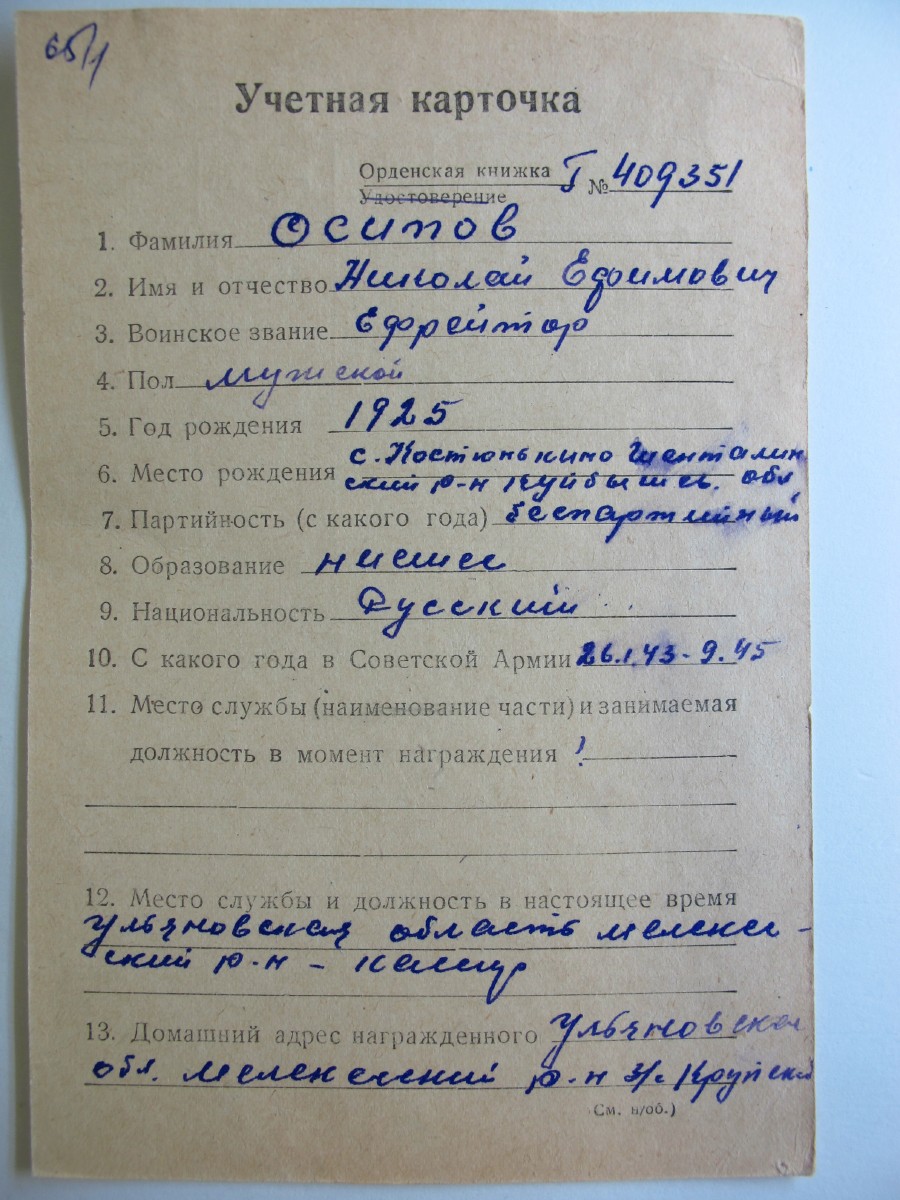 65/1
Учетная карточка
Орденская книжка Г № 409351
Удостоверение
1. Фамилия Осипов
2. Имя и отчество Николай Ефимович
3. Воинское звание Ефрейтор
4. Пол мужской
5. Год рождения 1925
с. Костюнькино Шенталин
6. Место рождения ский р-н Куйбышев. обл
7. Партийность (с какого года) беспартийный
8. Образование низшее
9. Национальность Русский
10. С какого года в Советской Армии 26.1.43-9.45
11. Место службы (наименование части) и занимаемая
должность в момент награждения
12. Место службы и должность в настоящее время
Ульяновская область Мелекес-
ский р-н -
13. Домашний адрес награжденного Ульяновская
обл. Мелекесский р-н з/с Крупской
См. н/об.)